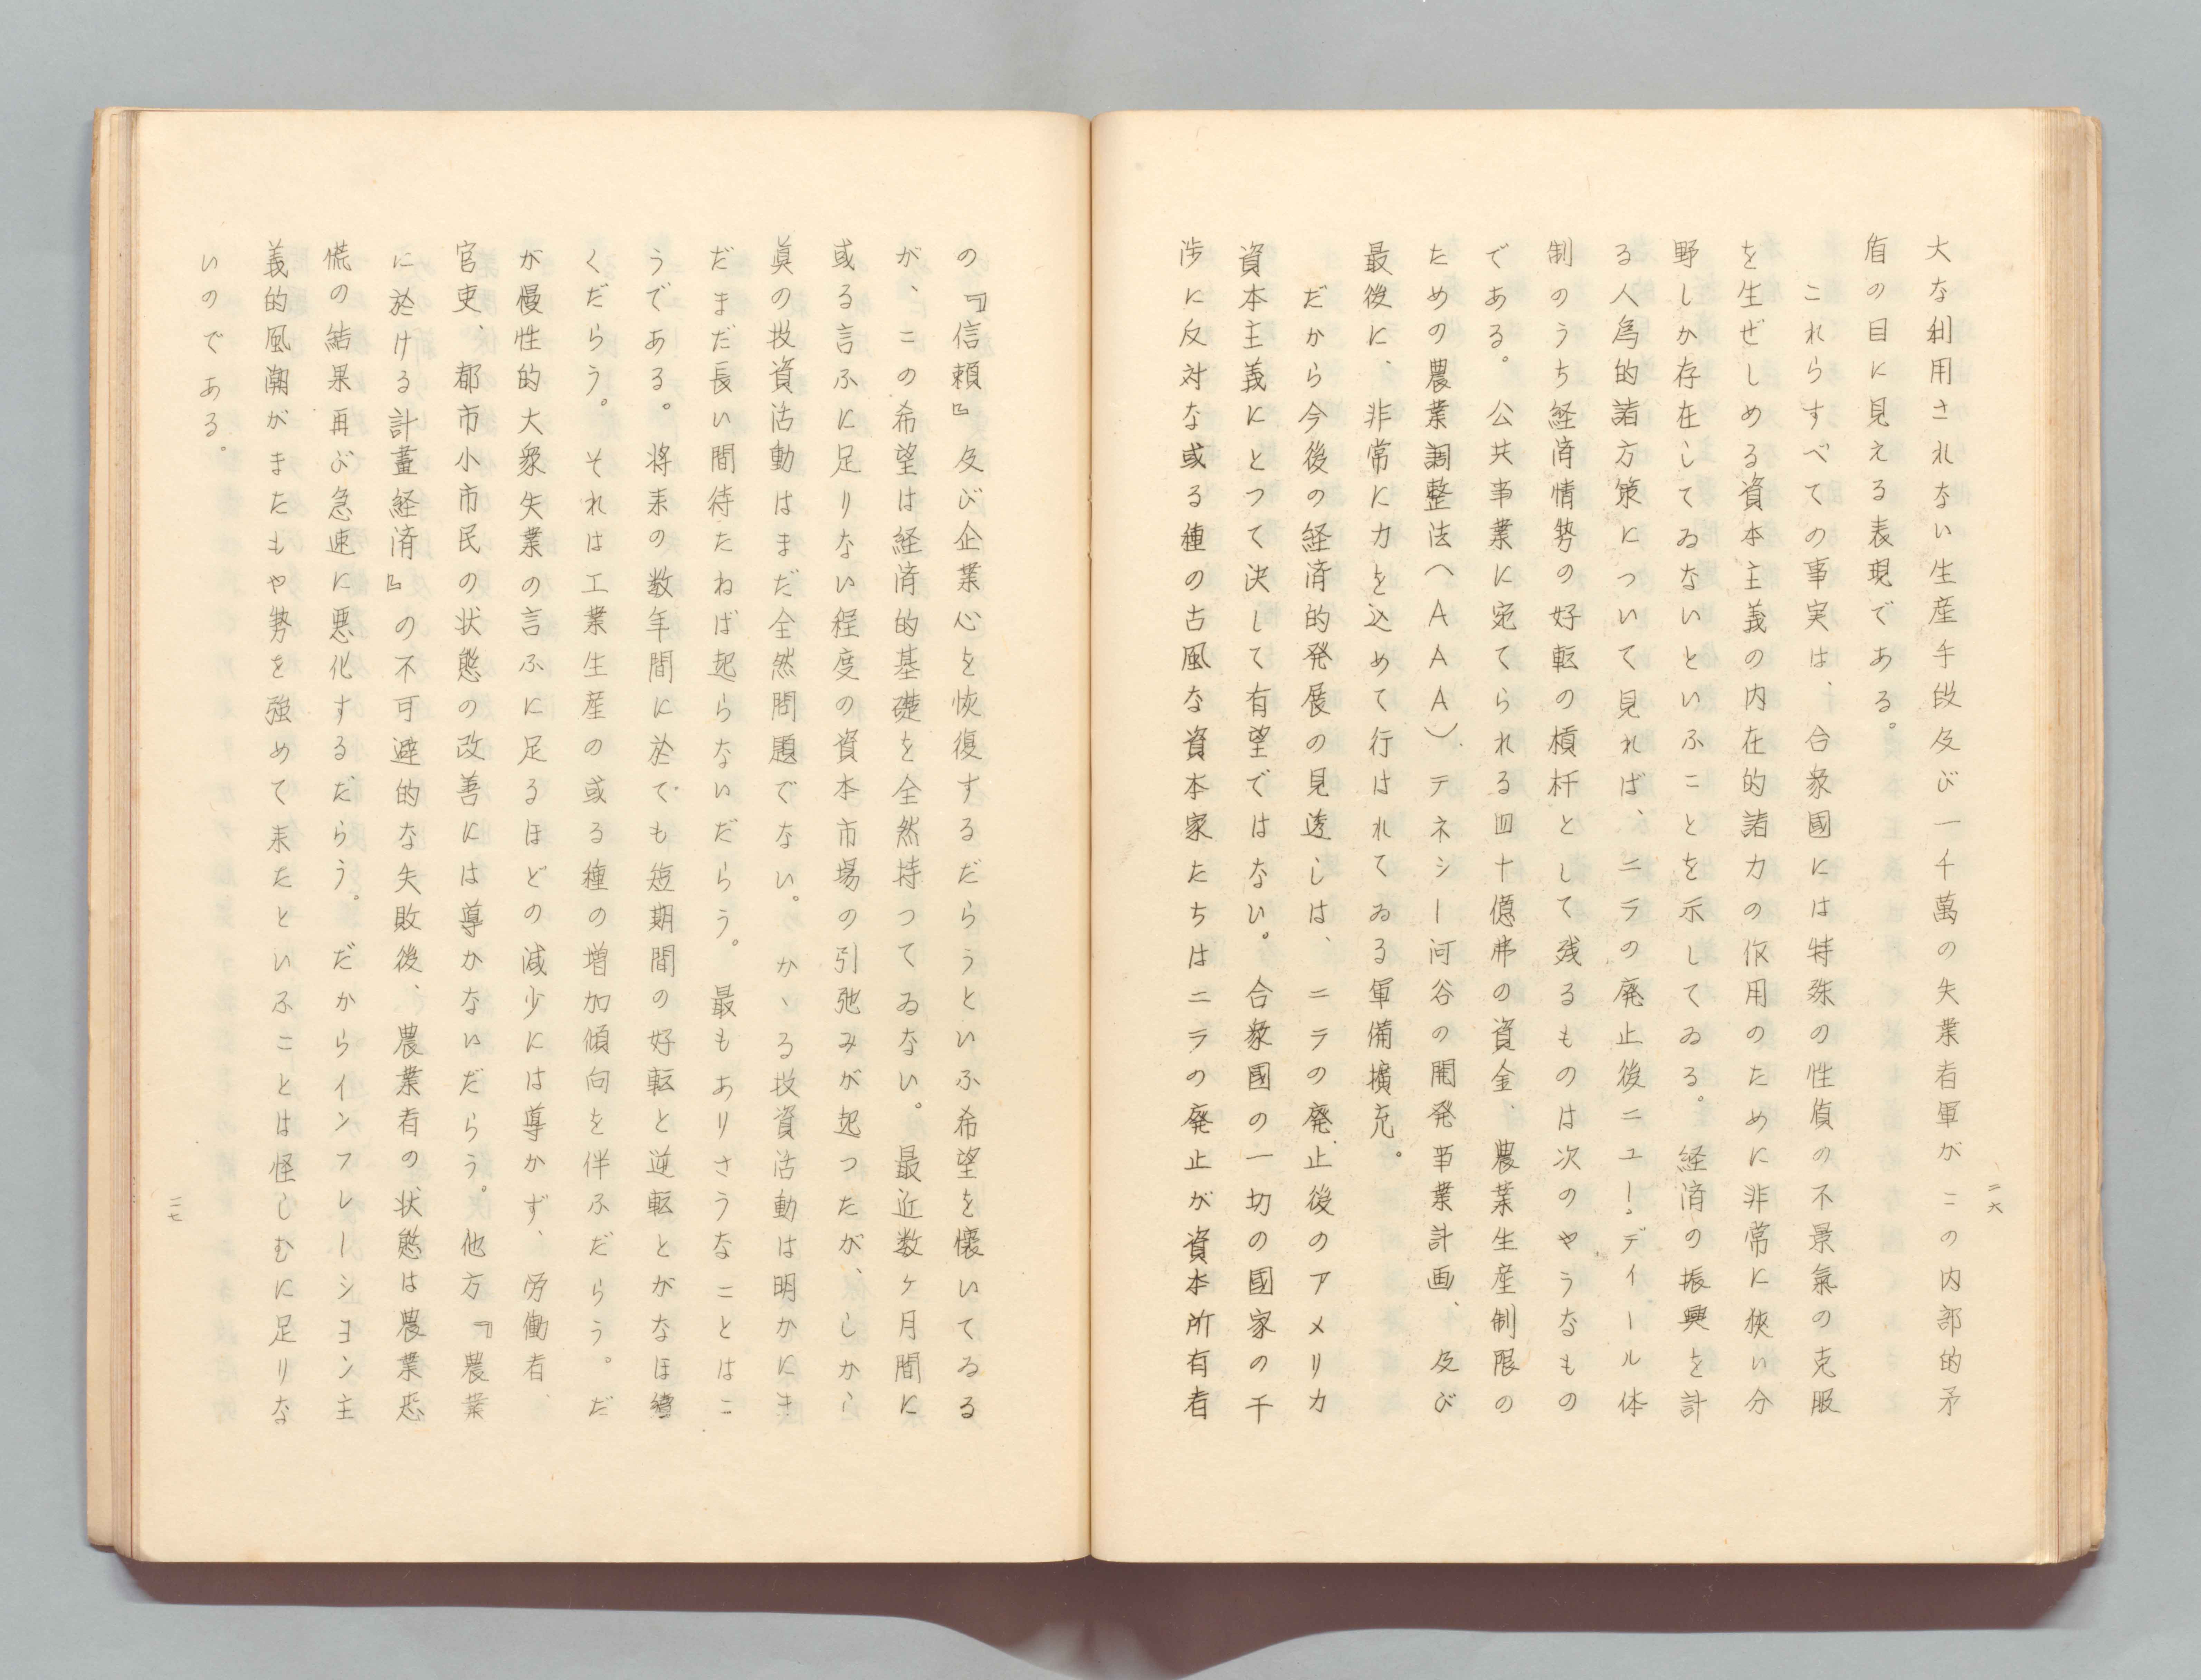 二六
大な利用されない生産手段及び一千萬の失業者軍がこの内部的矛
盾の目に見える表現である。
これらすべての事実は、合衆國には特殊の性質の不景氣の克服
を生ぜしめる資本主義の内在的諸力の作用のために非常に狹い分
野しか存在してゐないといふことを示してゐる。経済の振興を計
る人為的諸方策について見れば、ニラの廃止後ニュー・デイール体
制のうち経済情勢の好転の槓杆として残るものは次のやうなもの
である。公共事業に宛てられる四十億弗の資金、農業生産制限の
ための農業調整法（AAA）テネシー河谷の開発事業計画、及び
最後に、非常に力を込めて行はれてゐる軍備擴充。
だから今後の経済的発展の見透しは、ニラの廃止後のアメリカ
資本主義にとつて決して有望ではない。合衆國の一切の國家の干
渉に反対な或る種の古風な資本家たちはニラの廃止が資本所有者
の『信頼』及び企業心を恢復するだらうといふ希望を懐いてゐる
が、この希望は経済的基礎を全然持つてゐない。最近数ヶ月間に
或る言ふに足りない程度の資本市場の引弛みが起つたが、しかし
眞の投資活動はまだ全然問題でない。かゝる投資活動は明かにま
だまだ長い間待たねば起らないだらう。最もありさうなことはこ
うである。将来の数年間に於ても短期間の好転と逆転とがなほ續
くだらう。それは工業生産の或る種の増加傾向を伴ふだらう。だ
が慢性的大衆失業の言ふに足るほどの減少には導かず、労働者、
官吏、都市小市民の状態の改善には導かないだらう。他方『農業
に於ける計畫経済』の不可避的な失敗後、農業者の状態は農業恐
慌の結果再び急速に悪化するだらう。だからインフレーシヨン主
義的風潮がまたもや勢を強めて来たといふことは怪しむに足りな
いのである。
二七